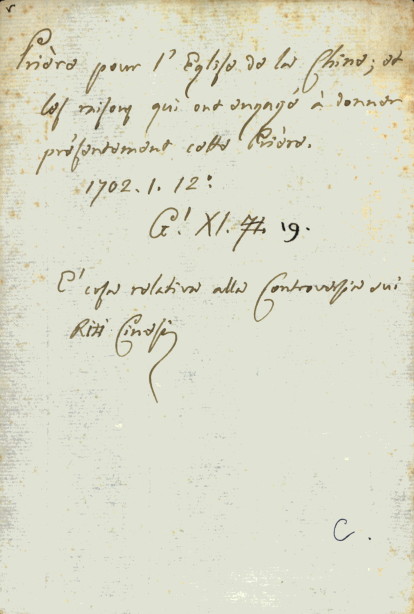 Prière pour l'Eglise de la Chine; et
les raisons qui ont engagé à donner
présentement cette Prière.
1702. 1. 12º
G! XI. 19.
E' cosa relativa alla Controversia sui
Riti Cinesi
C.